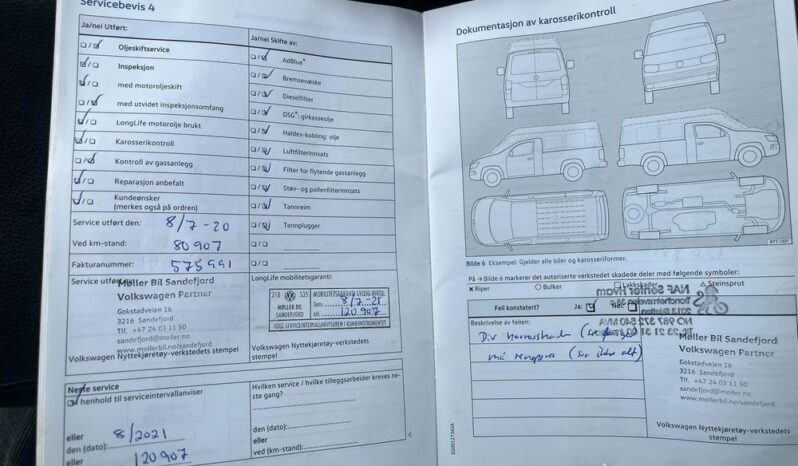 Servicebevis 4
Ja/nei Utført:
Oljeskiftservice
Inspeksjon
med motoroljeskift
med utvidet inspeksjonsomfang
LongLife motorolje brukt
Karosserikontroll
Kontroll av gassanlegg
Reparasjon anbefalt
Kundeønsker
(merkes også på ordren)
Service utført den: 8/7-20
Ved km-stand: 80907
Fakturanummer: 575991
Service utført
Møller Bil Sandefjord
Volkswagen Partner
Gokstadveien 16
3216 Sandefjord
Tlf. +47 24 03 11 50
sandefjord@moller.no
www.mollerbil.no/sandefjord
Volkswagen Nyttekjøretøy-verkstedets stempel
Ja/nei Skifte av:
AdBlue®
Bremsevæske
Dieselfilter
DSG®: girkasseolje
Haldex-kobling: olje
Luftfilterinnsats
Filter for flytende gassanlegg
Støv- og pollenfilterinnsats
Tannreim
Tennplugger
LongLife mobilitetsgaranti:
210 535
MØLLER BIL
SANDEFJORD
MOBILITETSGARANTI GYLDIG INNTIL
Dato 8/7-21
KM 120.907
FØLG SERVICEINTERVALLANVISEREN I KOMBIINSTRUMENTET
Volkswagen Nyttekjøretøy-verkstedets
stempel
Neste service
I henhold til serviceintervallanviser
eller
den (dato): 8/2021
eller
120907
Hvilken service / hvilke tilleggsarbeider kreves neste gang?
den (dato):
eller
ved (km-stand):
Dokumentasjon av karosserikontroll
B7T-1227
Bilde 6 Eksempel: Gjelder alle biler og karosseriformer.
På → Bilde 6 markerer det autoriserte verkstedet skadede deler med følgende symboler:
× Riper
○ Bulker
□ Lakkskader
☆ Steinsprut
Feil konstatert? Ja: Nei:
NAF Senter
NO 987 372 540 MVA
Beskrivelse av feilen:
Div
må
Møller Bil Sandefjord
Volkswagen Partner
Gokstadveien 16
3216 Sandefjord
Tlf. +47 24 03 11 50
sandefjord@moller.no
www.mollerbil.no/sandefjord
Volkswagen Nyttekjøretøy-verkstedets
stempel